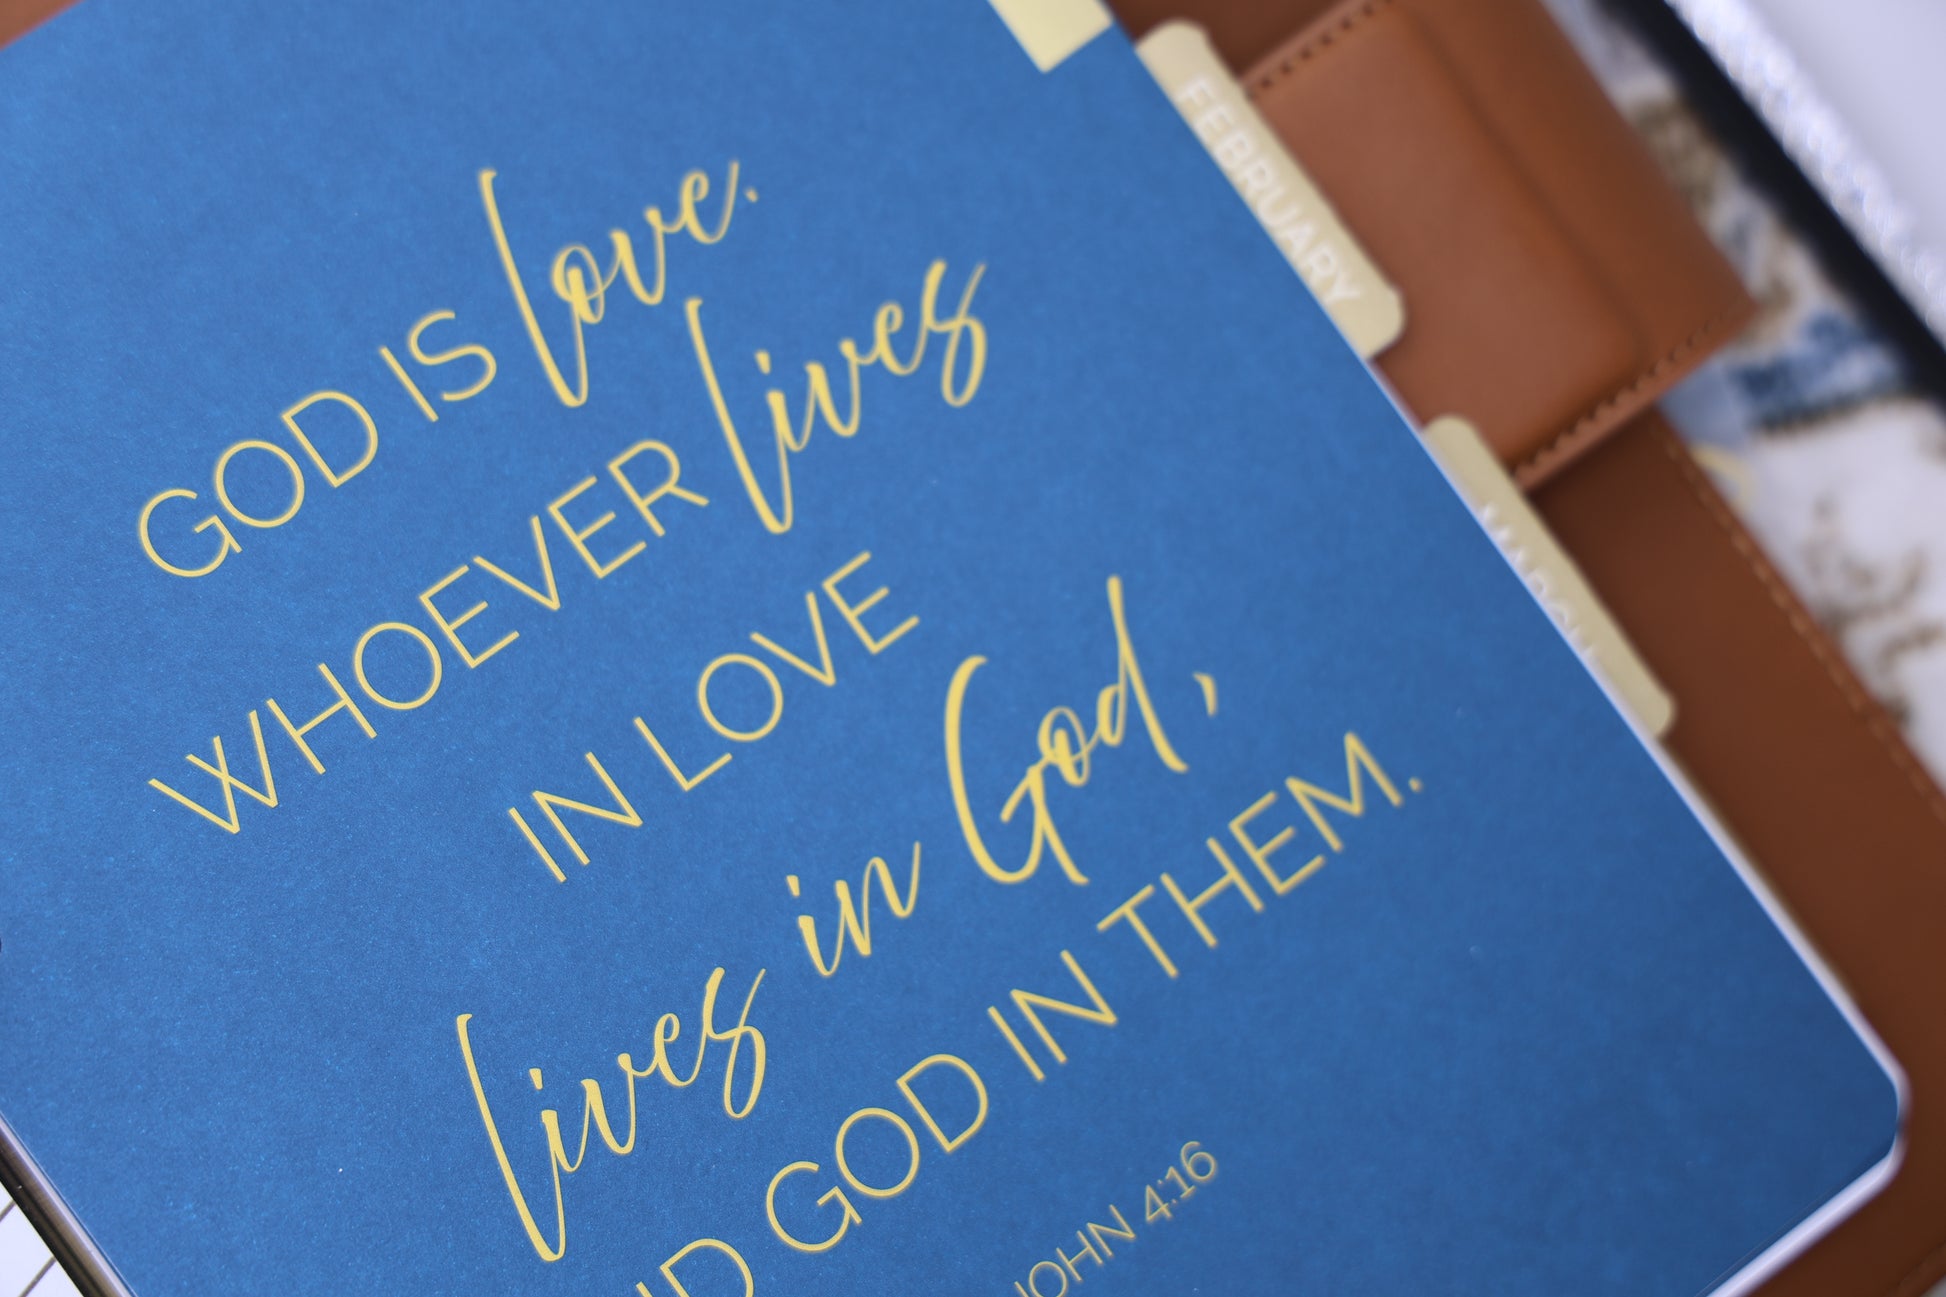 GOD IS love.
WHOEVER lives
IN LOVE
lives in God,
GOD IN THEM.
JOHN 4:16
FEBRUARY
MARCH